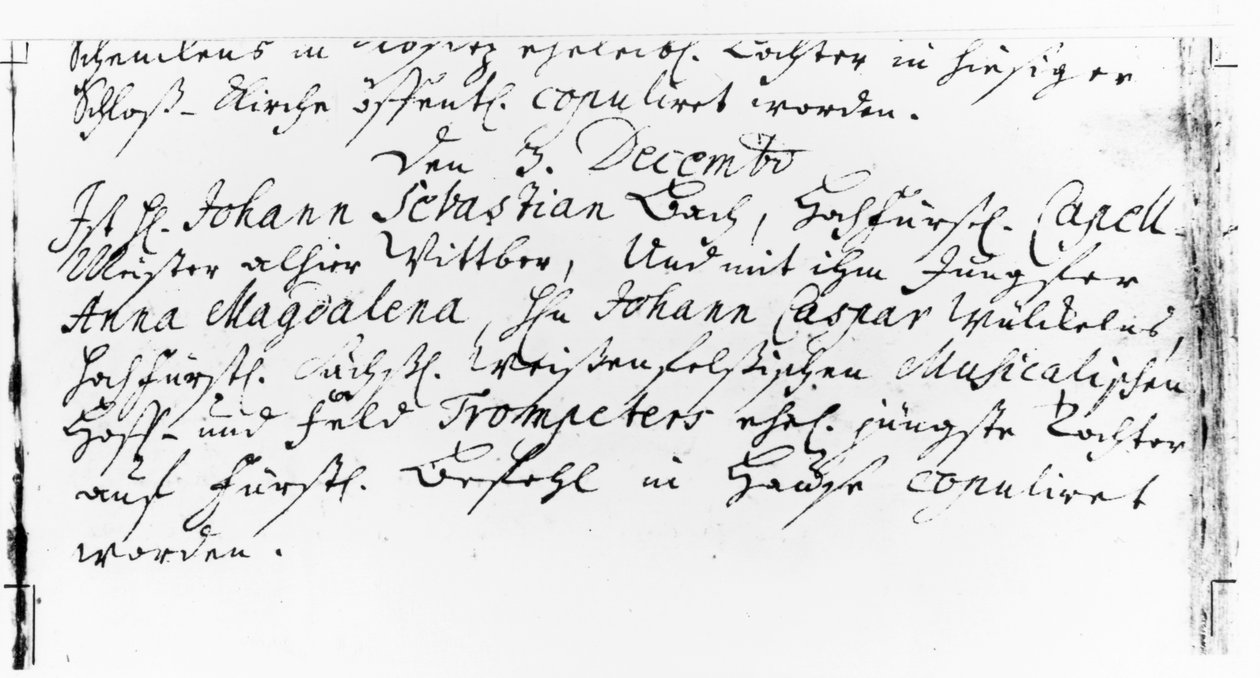 in eheleibl. Tochter in hiesiger
Schloß-Kirche öffentl. copuliret worden.
Den 3. Decembr
Ist H. Johann Sebastian Bach, HochFürstl. Capell-
Meister alhier Wittber, Und mit ihm Jungfer
Anna Magdalena, Hn Johann Caspar Wülckens,
HochFürstl. Sächßl. Weißenfelßischen Musicalischen
Hoff- und Feld Trompeters ehel. jüngste Tochter
auf Fürstl. Befehl in Hause copuliret
worden.